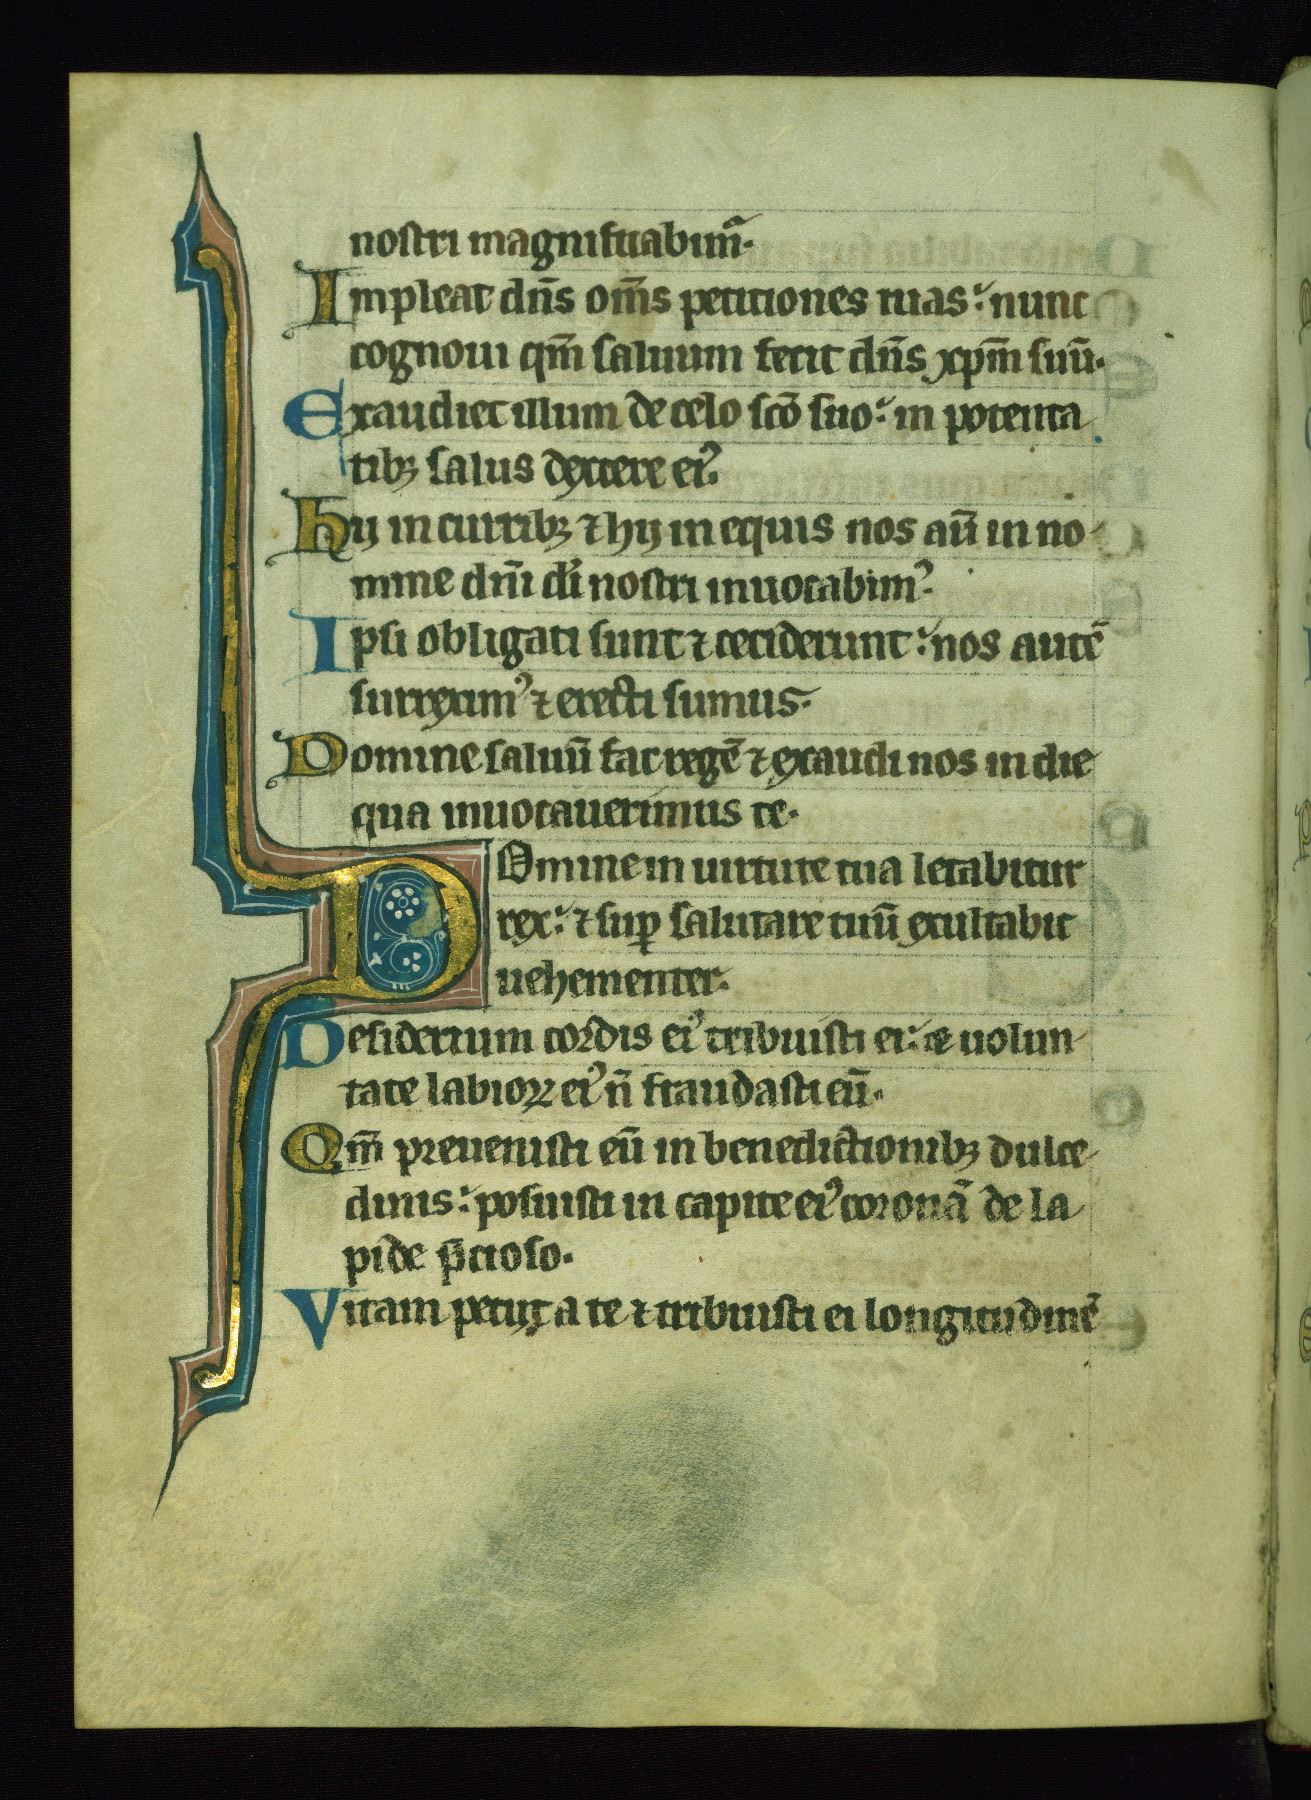 nostri magnificabim̄᷑·
Impleat dn̄s om̄s petitiones tuas: nunc
cognoui qm̄ saluum fecit dn̄s xp̄m suū·
Exaudiet illum de celo sc̄o suo: in potenta
tibꝫ salus dextere eiꝰ·
Hij in curribꝫ ⁊ hij in equis nos aū in no-
mine dn̄i di̾ nostri inuocabimꝰ·
Ipsi obligati sunt ⁊ ceciderunt: nos autē
surreximꝰ ⁊ erecti sumus·
Domine saluū fac regē ⁊ exaudi nos in die
qua inuocauerimus te·
DOmine in uirtute tua letabitur
rex: ⁊ suꝑ salutare tuū exultabit
uehementer·
Desiderium cordis eiꝰ tribuisti ei: ⁊ uolun
tate labioꝝ eiꝰ n̄ fraudasti eū·
Qm̄ preuenisti eū in benedictionibꝫ dulce
dinis: posuisti in capite eiꝰ coronā de la
pide p̄cioso·
Vitam petijt a te ⁊ tribuisti ei longitudinē